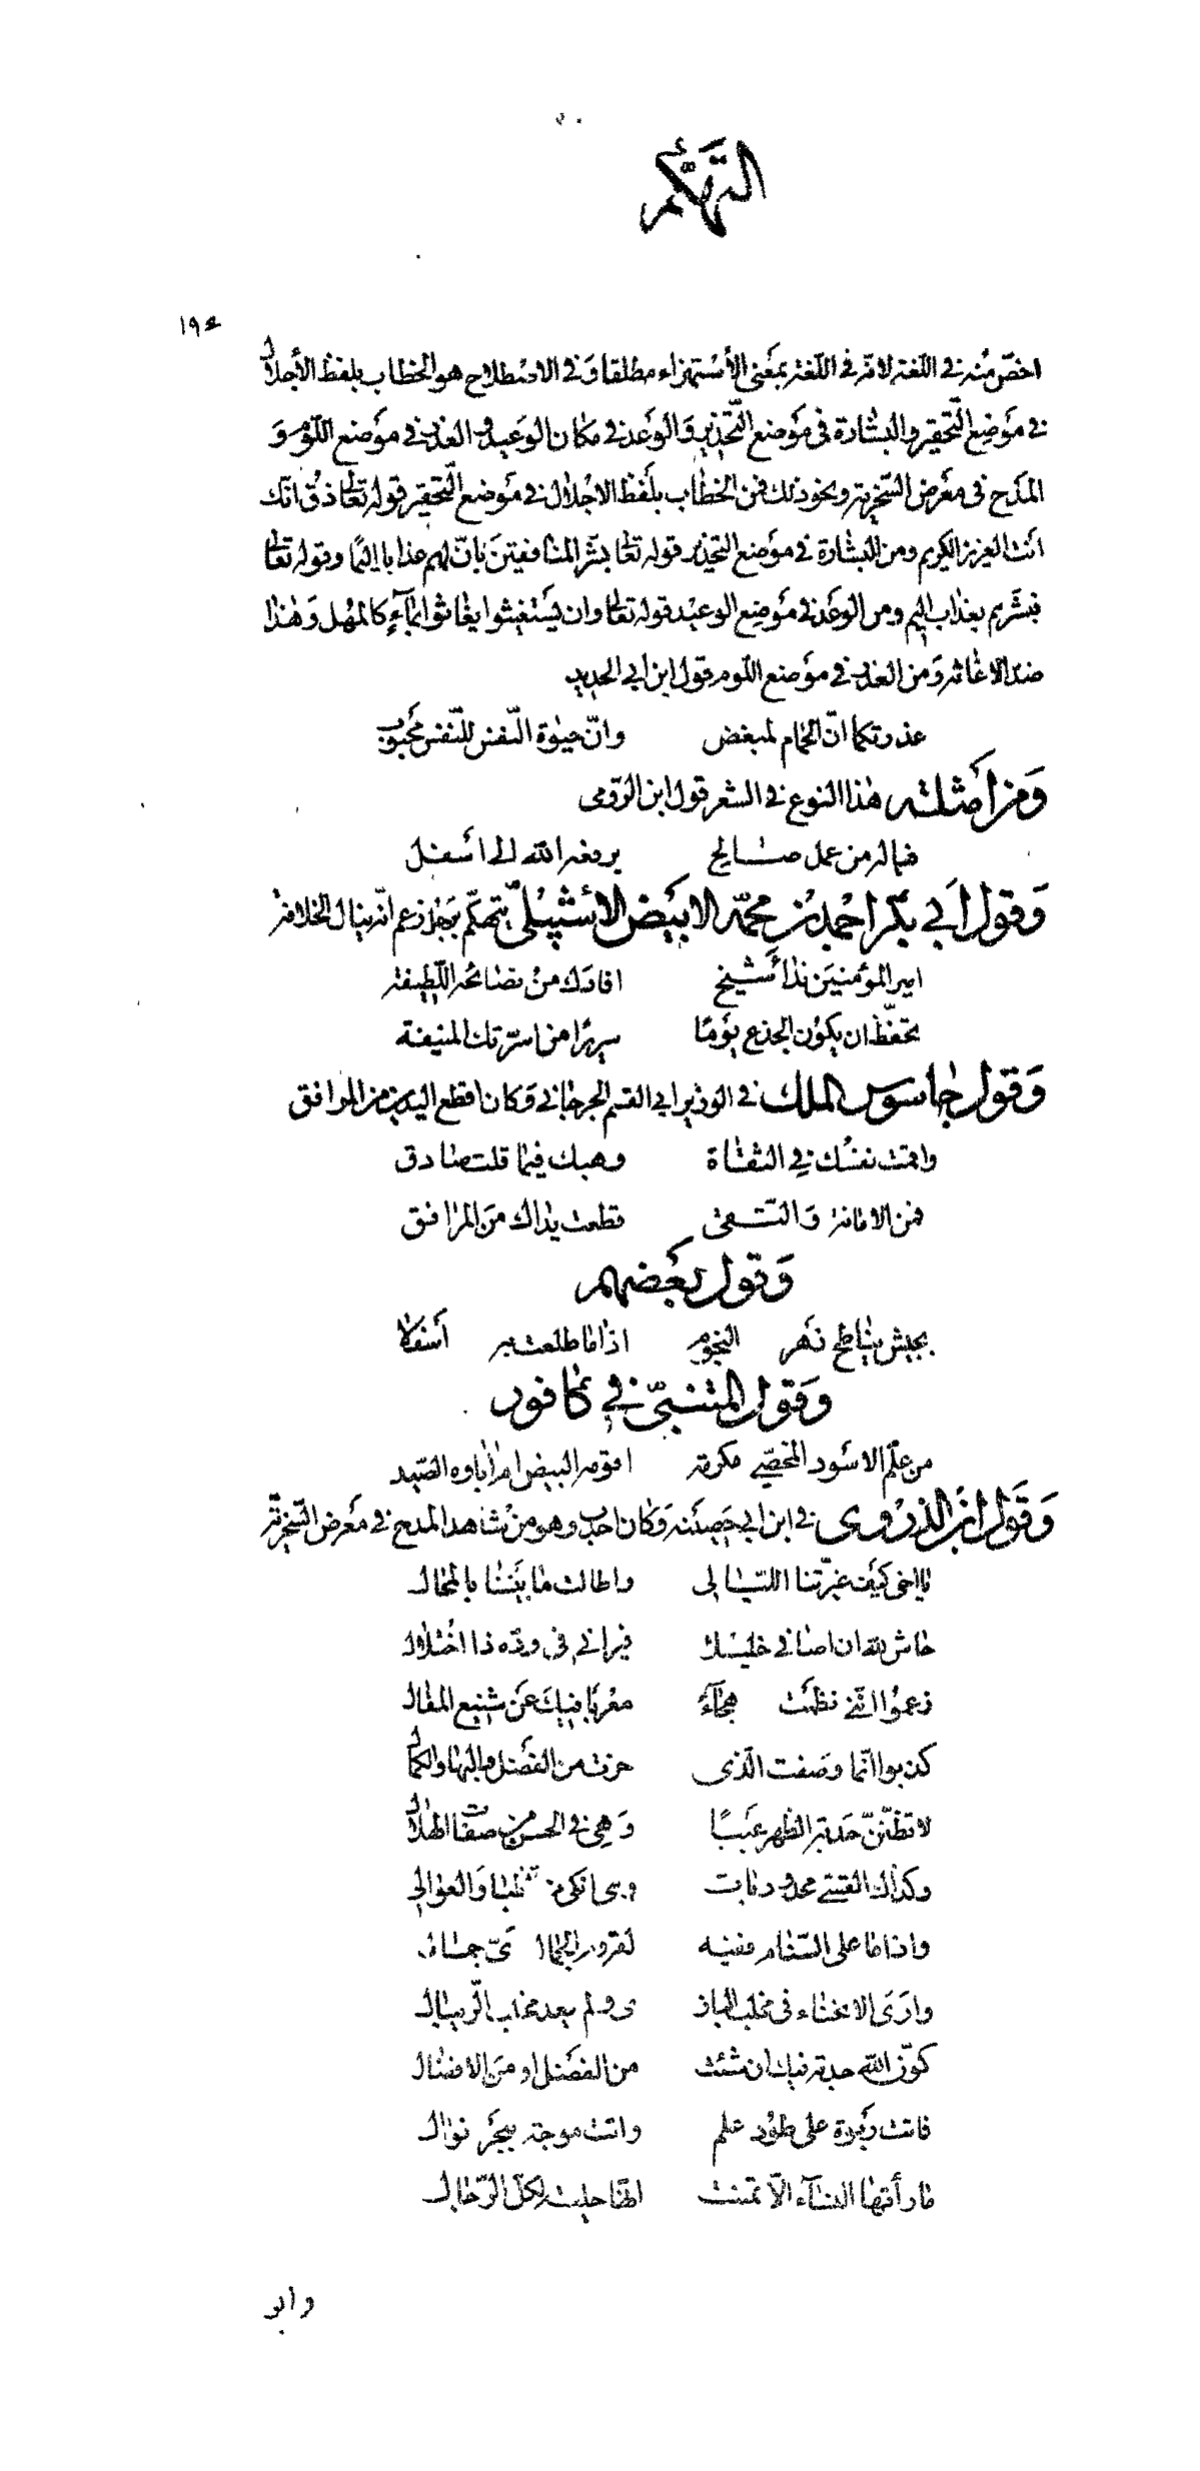 التهكم
١٩٤
اخصّ منه في اللغة لانه في اللغة بمعنى الأستهزاء مطلقا وفي الاصطلاح هو الخطاب بلفظ الأجلال
في موضع التّحقير والبشارة في موضع التّحذير والوعد في مكان الوعيد والعذر في موضع اللّوم و
المدح في معرض السّخرية ونحو ذلك فمن الخطاب بلفظ الاجلال في موضع التّحقير قوله تعالى ذق انّك
انت العزيز الكريم ومن البشارة في موضع التحذير قوله تعالى بشّر المنافقين بانّ لهم عذابا اليمًا وقوله تعالى
فبشّرهم بعذاب اليم ومن الوعد في موضع الوعيد قوله تعالى وان يستغيثوا يغاثوا بمآءٍ كالمهل وهذا
ضدّ الاغاثة ومن العذر في موضع اللّوم قول ابن ابي الحديد
عذرتكما انّ الحمام لمبغض وانّ حيٰوة النّفس للنّفس محبوب
ومن أمثلته هذا النوع في الشعر قول ابن الرّومى
فياله من عمل صالح يرفعه الله الى أسفل
وقول أبي بكر احمد بن محمّد الابيض الاشبيلىّ يتهكّم برجل زعم انّه ينال الخلافة
امير المؤمنين ندأ شيخ افادك من نصائحه اللّطيفة
تحفّظ ان يكون الجذع يومًا سريرًا من اسرّتك المنيفة
وقول جاسوس الملك في الوزير ابي القسم الجرجاني وكان اقطع اليدين من المرافق
واقمت نفسك في الثقاة وهبك فيما قلت صادق
فمن الامانة والتّقى قطعت يداك من المرافق
وقول بعضهم
بجيش يناطح زهر النجوم اذا ما طلعت به أسفلا
وقول المتنبّى في كافور
من علّم الاسود المخصّي مكرمة اقومه البيض ام اٰباوه الصّيد
وقول ابن الذروى في ابن ابي حصينة وكان احدب وهو من شاهد المدح في معرض السّخريّة
يا اخى كيف غيّرتنا اللّيالي واطالت ما بيننا بالمحال
حاش لله ان اصافي خليلا فيراني في ودّه ذا اختلال
زعموا انّني نظمت هجآءً معربا فيك عن شنيع المقال
كذبوا انّما وصفت الّذى حزت من الفضل والبها والكمال
لا تظنّنّ حدبة الظهر عيبًا وهي في الحسن من صفات الهلال
وكذاك القسيّ محدودبات وهي انكى من الظبا والعوالي
واذا ما على السّنام ففيه لقروم الجمال أىّ جمال
وارى الانحناء في مخلب الباز ى ولم يعد مخلب الرّيبال
كوّن الله حدبة فيك ان شئت من الفضل او من الافضال
فاتت ربوة على طود علم واتت موجة ببحر نوال
ما رأتها النسآء الّا تمنّت انّها حلية لكلّ الرّجال
وابو